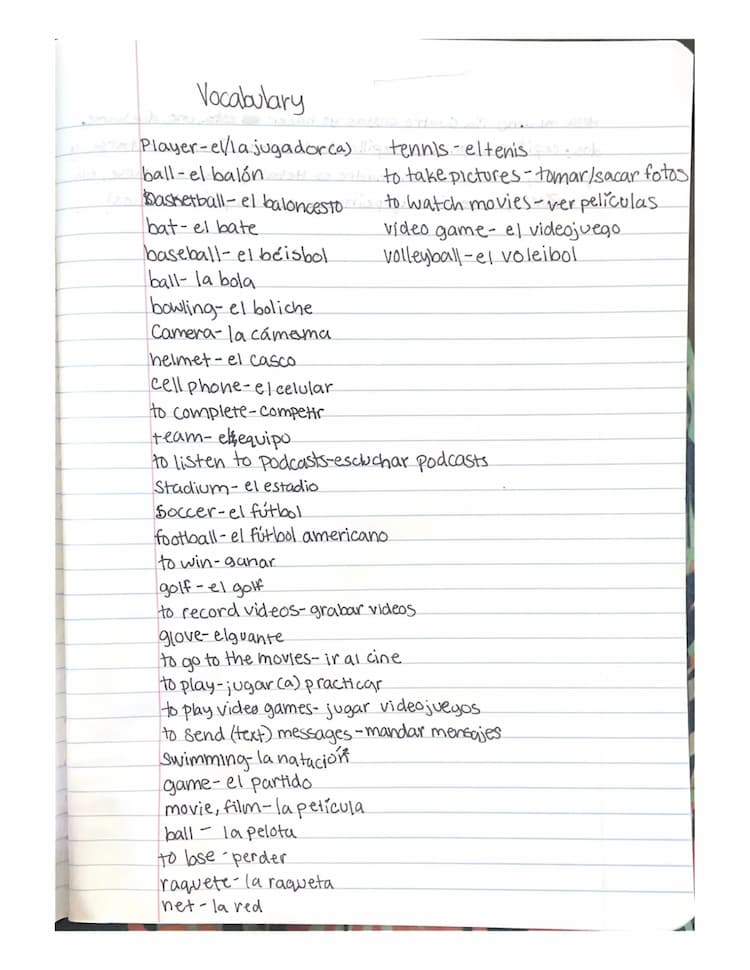 Vocabulary
Player - el/la jugador(a)
ball - el balón
basketball - el baloncesto
bat - el bate
baseball - el béisbol
ball - la bola
bowling - el boliche
Camera - la cámama
helmet - el casco
cell phone - el celular
to complete - competir
team - el equipo
to listen to podcasts - escuchar podcasts
Stadium - el estadio
Soccer - el fútbol
football - el fútbol americano
to win - ganar
golf - el golf
to record videos - grabar videos
glove - el guante
to go to the movies - ir al cine
to play - jugar (a) practicar
to play video games - jugar videojuegos
to send (text) messages - mandar mensajes
Swimming - la natación
game - el partido
movie, film - la película
ball - la pelota
to lose - perder
raquete - la raqueta
net - la red
tennis - el tenis
to take pictures - tomar/sacar fotos
to watch movies - ver películas
video game - el videojuego
volleyball - el voleibol